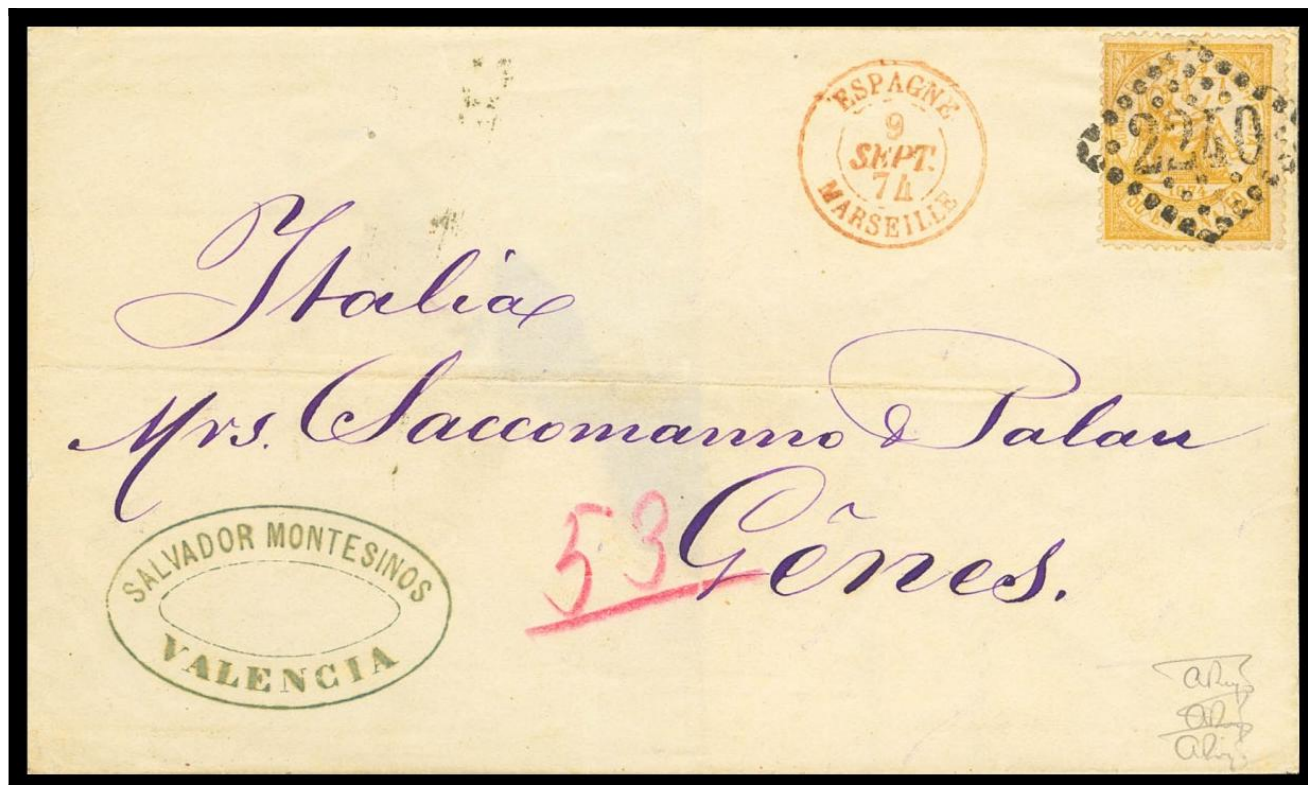 ESPAGNE
9
SEPT.
74
MARSEILLE
2240
Italia
Mrs. Saccomanno & Palau
Gênes.
53
SALVADOR MONTESINOS
VALENCIA